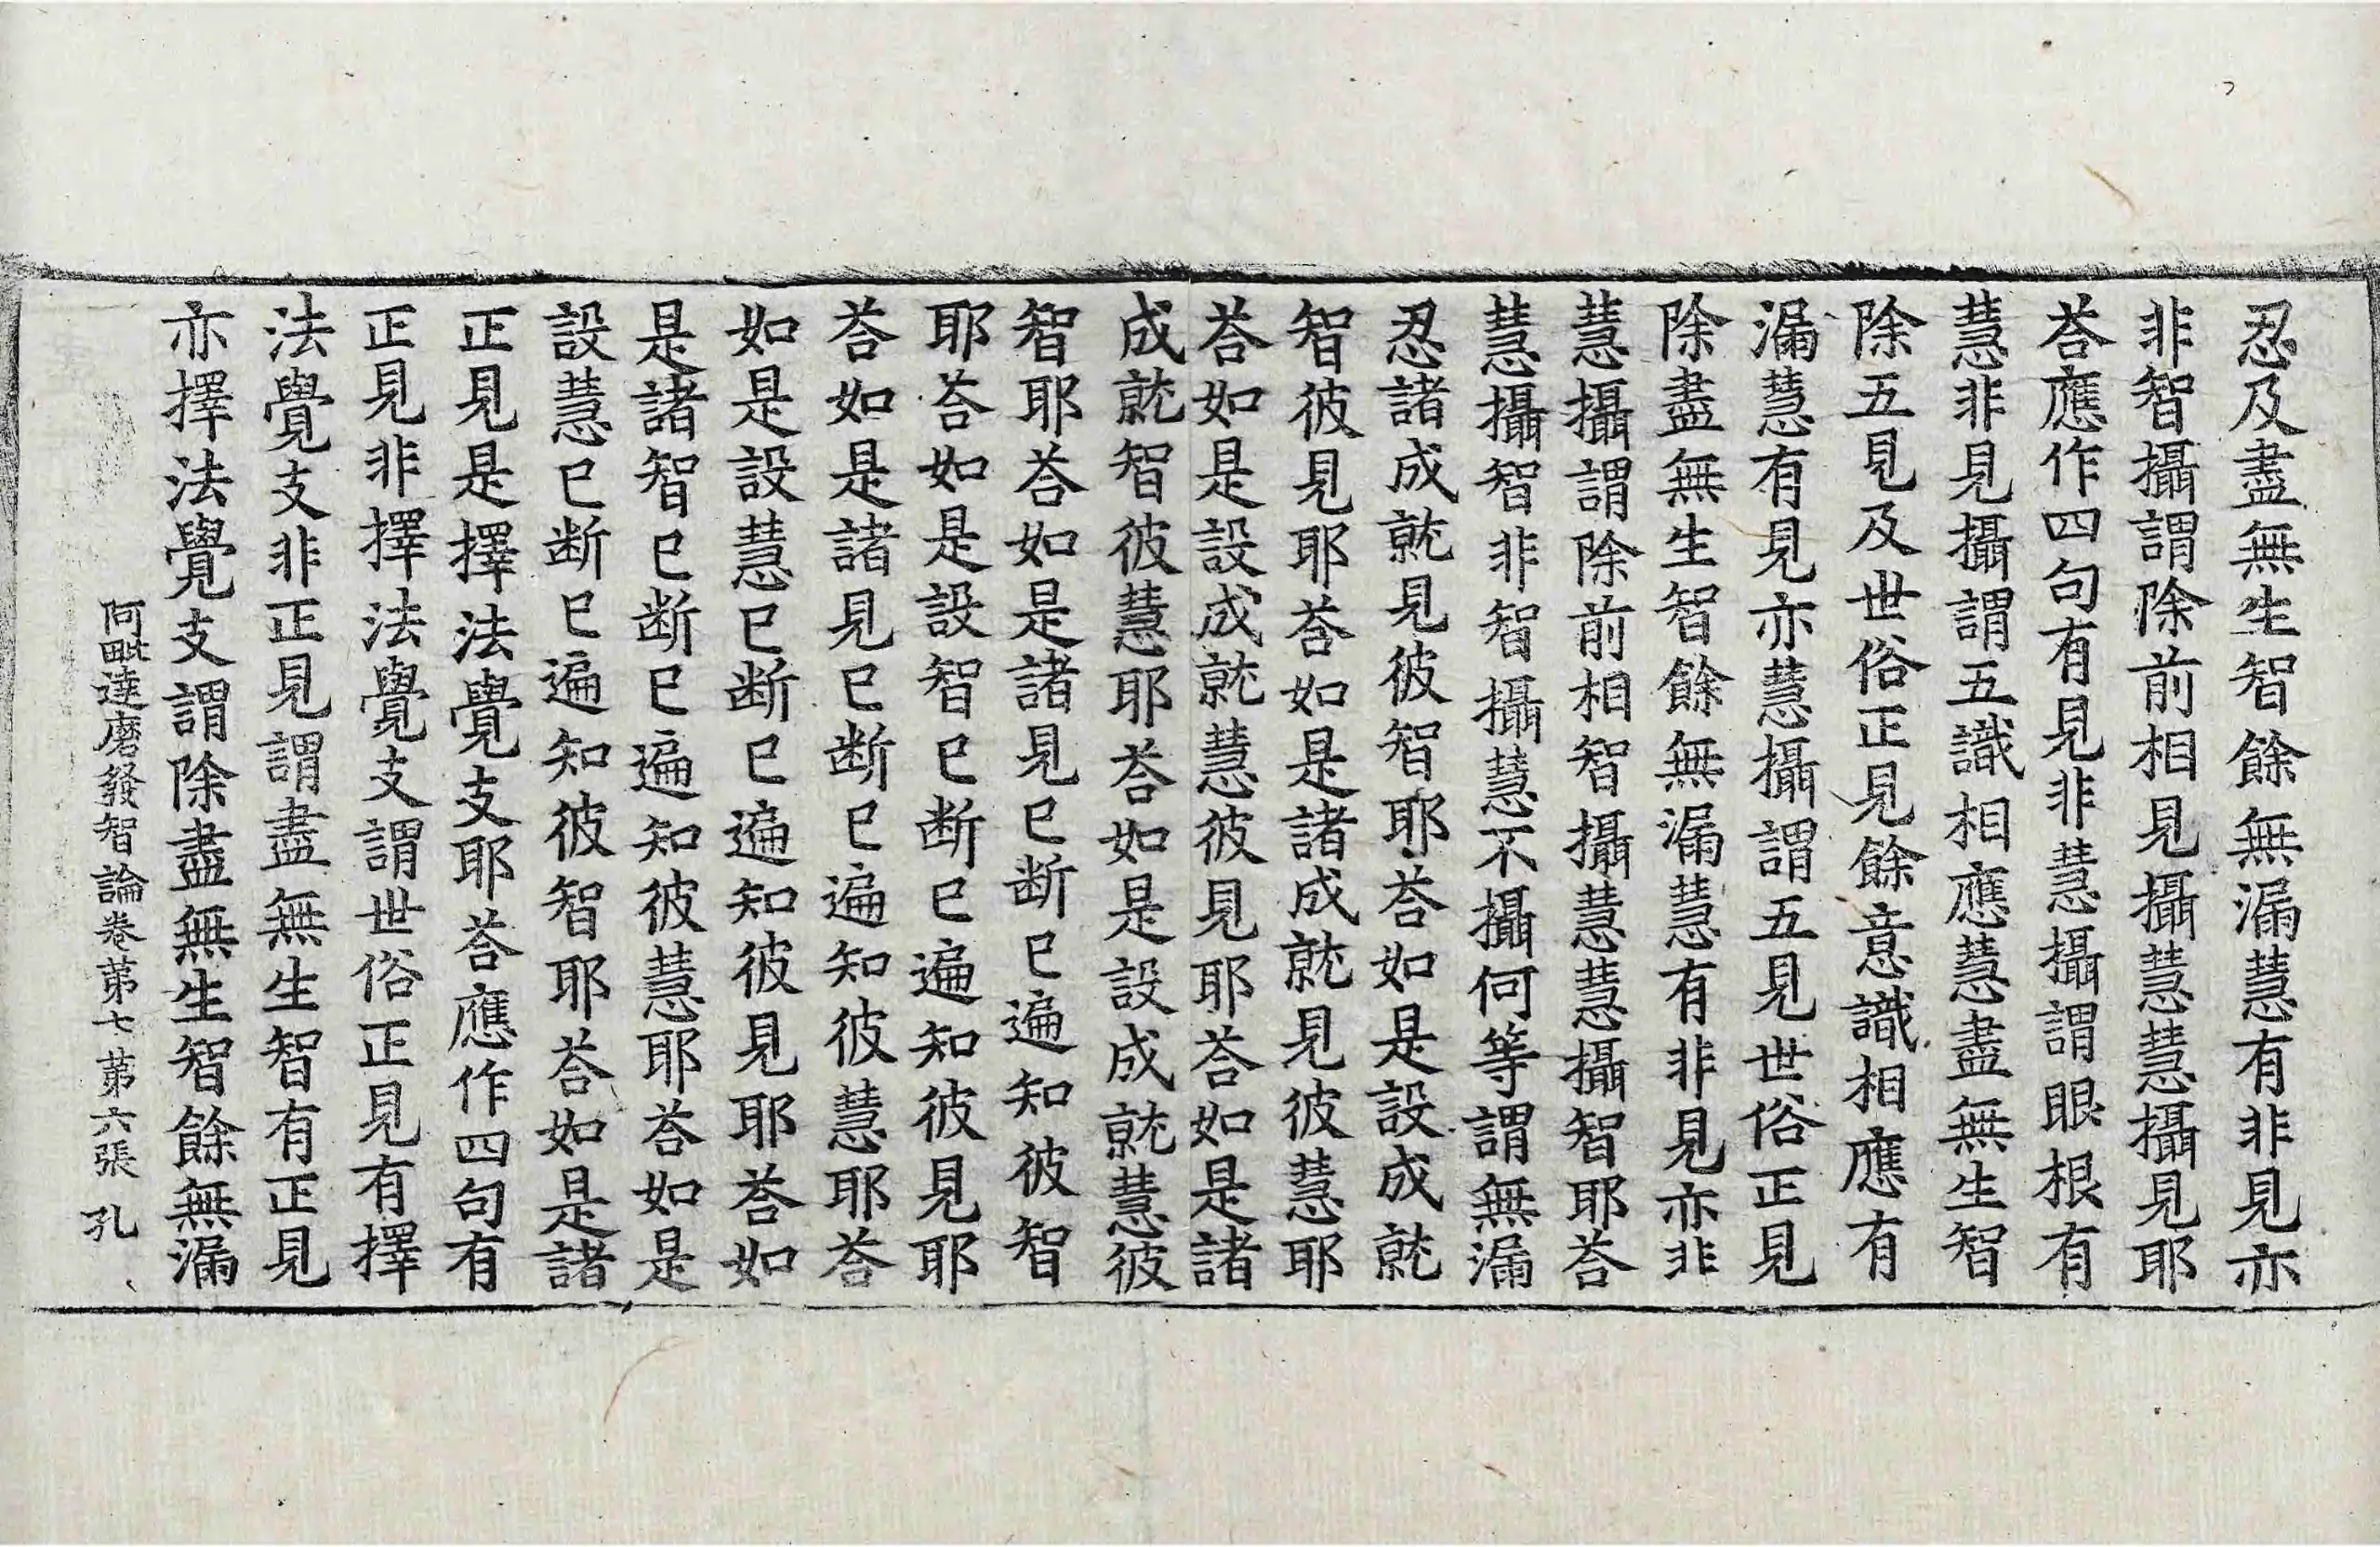 忍及盡無生智餘無漏慧有非見亦
非智攝謂除前相見攝慧慧攝見耶
荅應作四句有見非慧攝謂眼根有
慧非見攝謂五識相應慧盡無生智
除五見及世俗正見餘意識相應有
漏慧有見亦慧攝謂五見世俗正見
除盡無生智餘無漏慧有非見亦非
慧攝謂除前相智攝慧慧攝智耶荅
慧攝智非智攝慧不攝何等謂無漏
忍諸成就見彼智耶荅如是設成就
智彼見耶荅如是諸成就見彼慧耶
荅如是設成就慧彼見耶荅如是諸
成就智彼慧耶荅如是設成就慧彼
智耶荅如是諸見已断已遍知彼智
耶荅如是設智已断已遍知彼見耶
荅如是諸見已断已遍知彼慧耶荅
如是設慧已断已遍知彼見耶荅如
是諸智已断已遍知彼慧耶荅如是
設慧已断已遍知彼智耶荅如是諸
正見是擇法覺支耶荅應作四句有
正見非擇法覺支謂世俗正見有擇
法覺支非正見謂盡無生智有正見
亦擇法覺支謂除盡無生智餘無漏
阿毗達磨發智論卷苐七 苐六張 孔